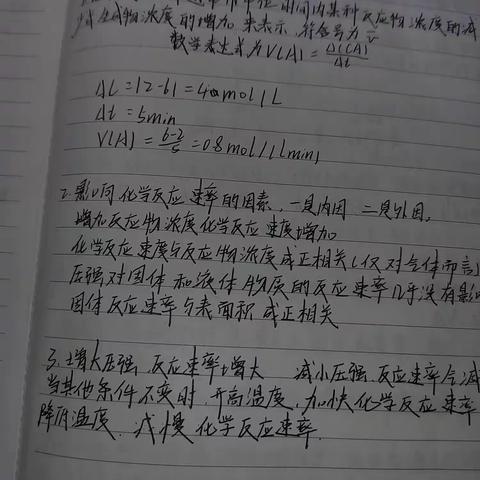 通常用单位时间内某种反应物浓度的减
少或生成物浓度的增加来表示,符合号为 v̅
数学表达式为V(A)=Δc(A)/Δt
Δc=|2-6|=4.0mol/L
Δt=5min
V(A)=6-2/5=0.8mol/(Lmin)
2.影响化学反应速率的因素,一是内因 二是外因,
增加反应物浓度化学反应速度增加
化学反应速度与反应物浓度成正相关(仅对气体而言)
压强对固体和液体物质的反应速率几乎没有影响
固体反应速率与表面积成正相关
3.增大压强,反应速率增大 减小压强,反应速率会减
当其他条件不变时,升高温度,加快化学反应速率
降低温度,减慢化学反应速率.